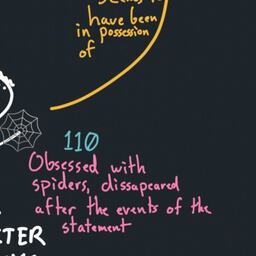 have been
in possession
of
110
Obsessed with
spiders, dissapeared
after the events of the
statement